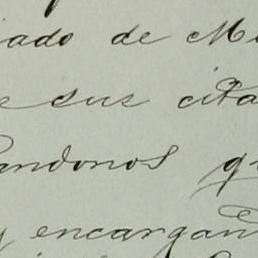 iado de M
e sus cita
andonos q
y encargan